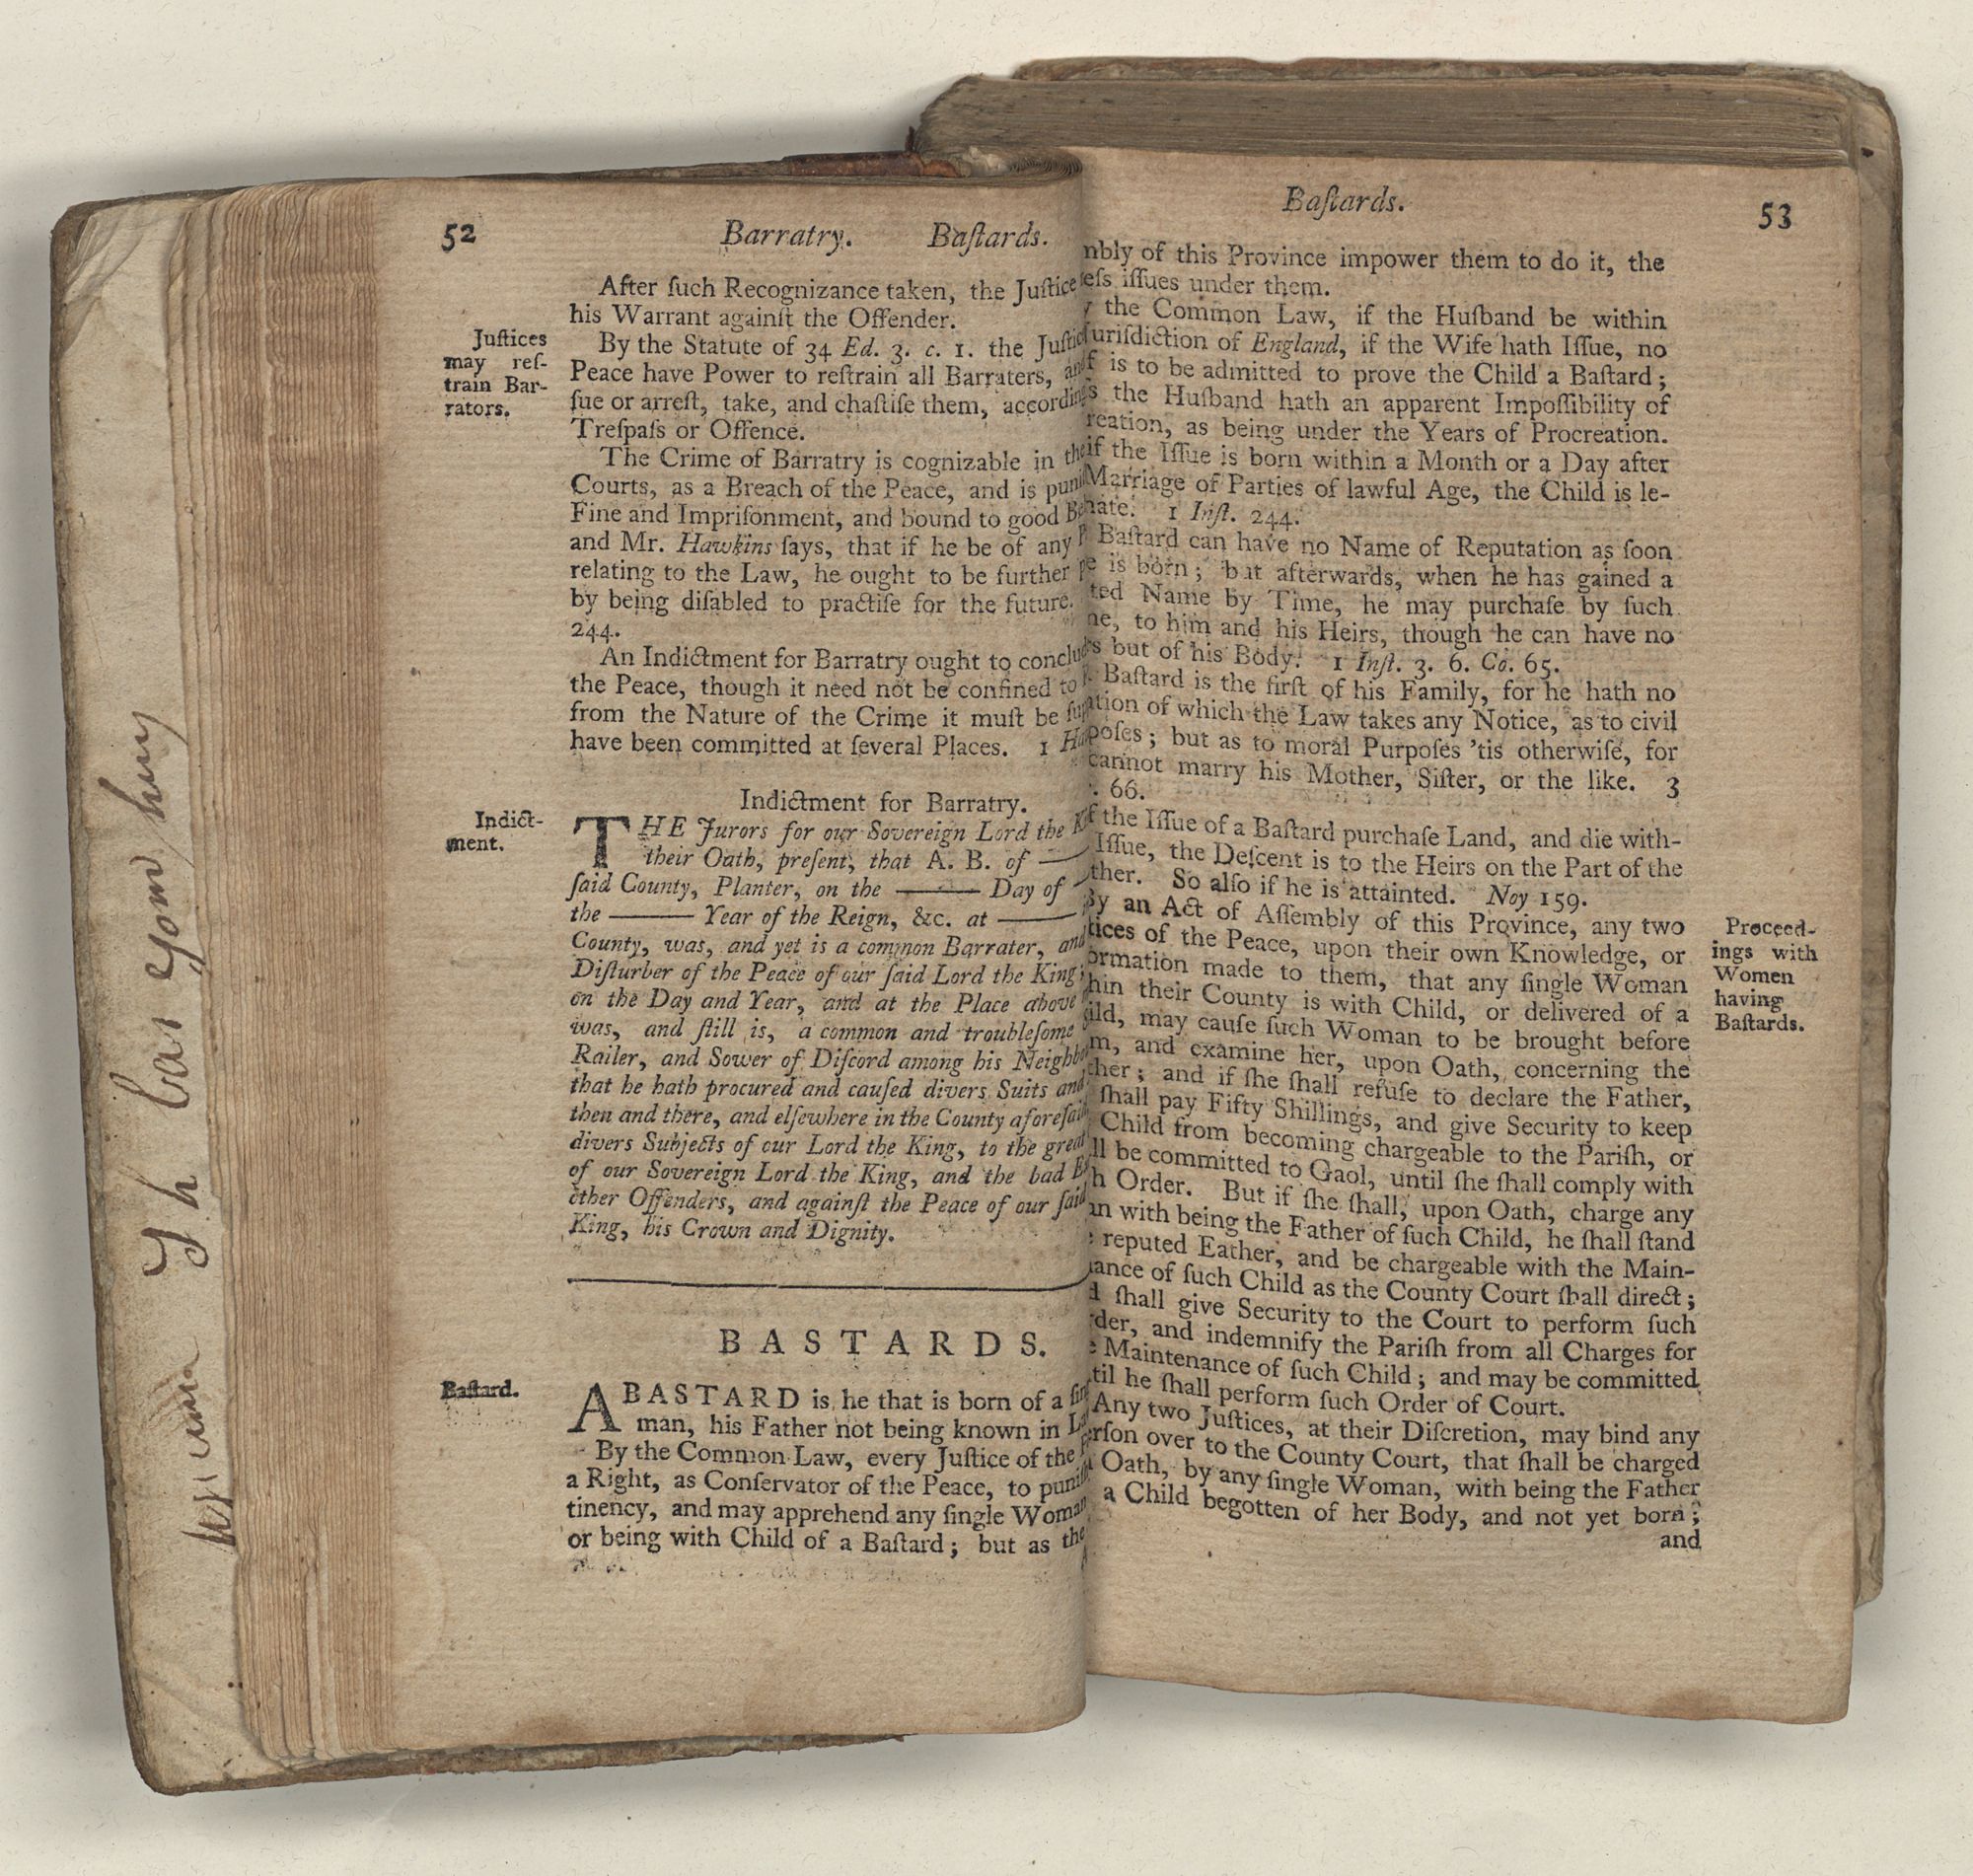 52 Barratry. Bastards.
After ſuch Recognizance taken, the Juſtice
his Warrant againſt the Offender.
Juſtices
may reſ-
train Bar-
rators.
By the Statute of 34 Ed. 3. c. 1. the
Peace have Power to reſtrain all Barraters,
ſue or arreſt, take, and chaſtiſe them,
Treſpaſs or Offence.
The Crime of Barratry is cognizable in
Courts, as a Breach of the Peace, and is
Fine and Impriſonment, and bound to good
and Mr. Hawkins ſays, that if he be of any
relating to the Law, he ought to be further
by being diſabled to practiſe for the future.
244.
An Indictment for Barratry ought to
the Peace, though it need not be confined to
from the Nature of the Crime it muſt be
have been committed at ſeveral Places. 1
Indictment for Barratry.
Indict-
ment.
THE Jurors for our Sovereign Lord the
their Oath, preſent, that A. B. of ——
ſaid County, Planter, on the —— Day of
the —— Year of the Reign, &c. at ——
County, was, and yet is a common Barrater, and
Diſturber of the Peace of our ſaid Lord the King;
on the Day and Year, and at the Place above
was, and ſtill is, a common and troubleſome
Railer, and Sower of Diſcord among his
that he hath procured and cauſed divers Suits and
then and there, and elſewhere in the County
divers Subjects of our Lord the King, to the great
of our Sovereign Lord the King, and the bad
other Offenders, and againſt the Peace of our ſaid
King, his Crown and Dignity.
BASTARDS.
Baſtard.
A BASTARD is he that is born of a
man, his Father not being known in
By the Common Law, every Juſtice of the
a Right, as Conſervator of the Peace, to
tinency, and may apprehend any ſingle Woman
or being with Child of a Baſtard; but as the
Baſtards. 53
of this Province impower them to do it, the
iſſues under them.
the Common Law, if the Huſband be within
of England, if the Wife hath Iſſue, no
is to be admitted to prove the Child a Baſtard;
the Huſband hath an apparent Impoſſibility of
as being under the Years of Procreation.
if the Iſſue is born within a Month or a Day after
Marriage of Parties of lawful Age, the Child is le-
1 Inſt. 244.
Baſtard can have no Name of Reputation as ſoon
is born; but afterwards, when he has gained a
Name by Time, he may purchaſe by ſuch
to him and his Heirs, though he can have no
but of his Body. 1 Inſt. 3. 6. Co. 65.
Baſtard is the firſt of his Family, for he hath no
of which the Law takes any Notice, as to civil
but as to moral Purpoſes 'tis otherwiſe, for
cannot marry his Mother, Siſter, or the like. 3
66.
the Iſſue of a Baſtard purchaſe Land, and die with-
Iſſue, the Deſcent is to the Heirs on the Part of the
So alſo if he is attainted. Noy 159.
By an Act of Aſſembly of this Province, any two
of the Peace, upon their own Knowledge, or
made to them, that any ſingle Woman
their County is with Child, or delivered of a
may cauſe ſuch Woman to be brought before
and examine her, upon Oath, concerning the
and if ſhe ſhall refuſe to declare the Father,
ſhall pay Fifty Shillings, and give Security to keep
Child from becoming chargeable to the Pariſh, or
be committed to Gaol, until ſhe ſhall comply with
Order. But if ſhe ſhall, upon Oath, charge any
with being the Father of ſuch Child, he ſhall ſtand
reputed Eather, and be chargeable with the Main-
of ſuch Child as the County Court ſhall direct;
ſhall give Security to the Court to perform ſuch
and indemnify the Pariſh from all Charges for
Maintenance of ſuch Child; and may be committed
he ſhall perform ſuch Order of Court.
Any two Juſtices, at their Diſcretion, may bind any
over to the County Court, that ſhall be charged
Oath, by any ſingle Woman, with being the Father
a Child begotten of her Body, and not yet born;
and
Proceed-
ings with
Women
having
Baſtards.